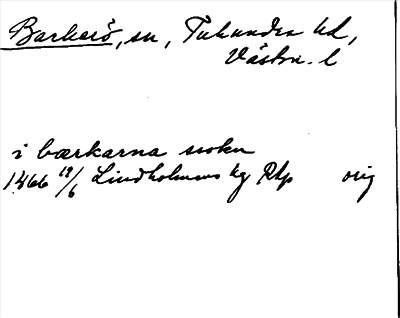 Barkarö, sn, Tuhundra hd,
Västm. l
i bærkarna sokn
1466 19/6 Lindholmens hg RAp orig